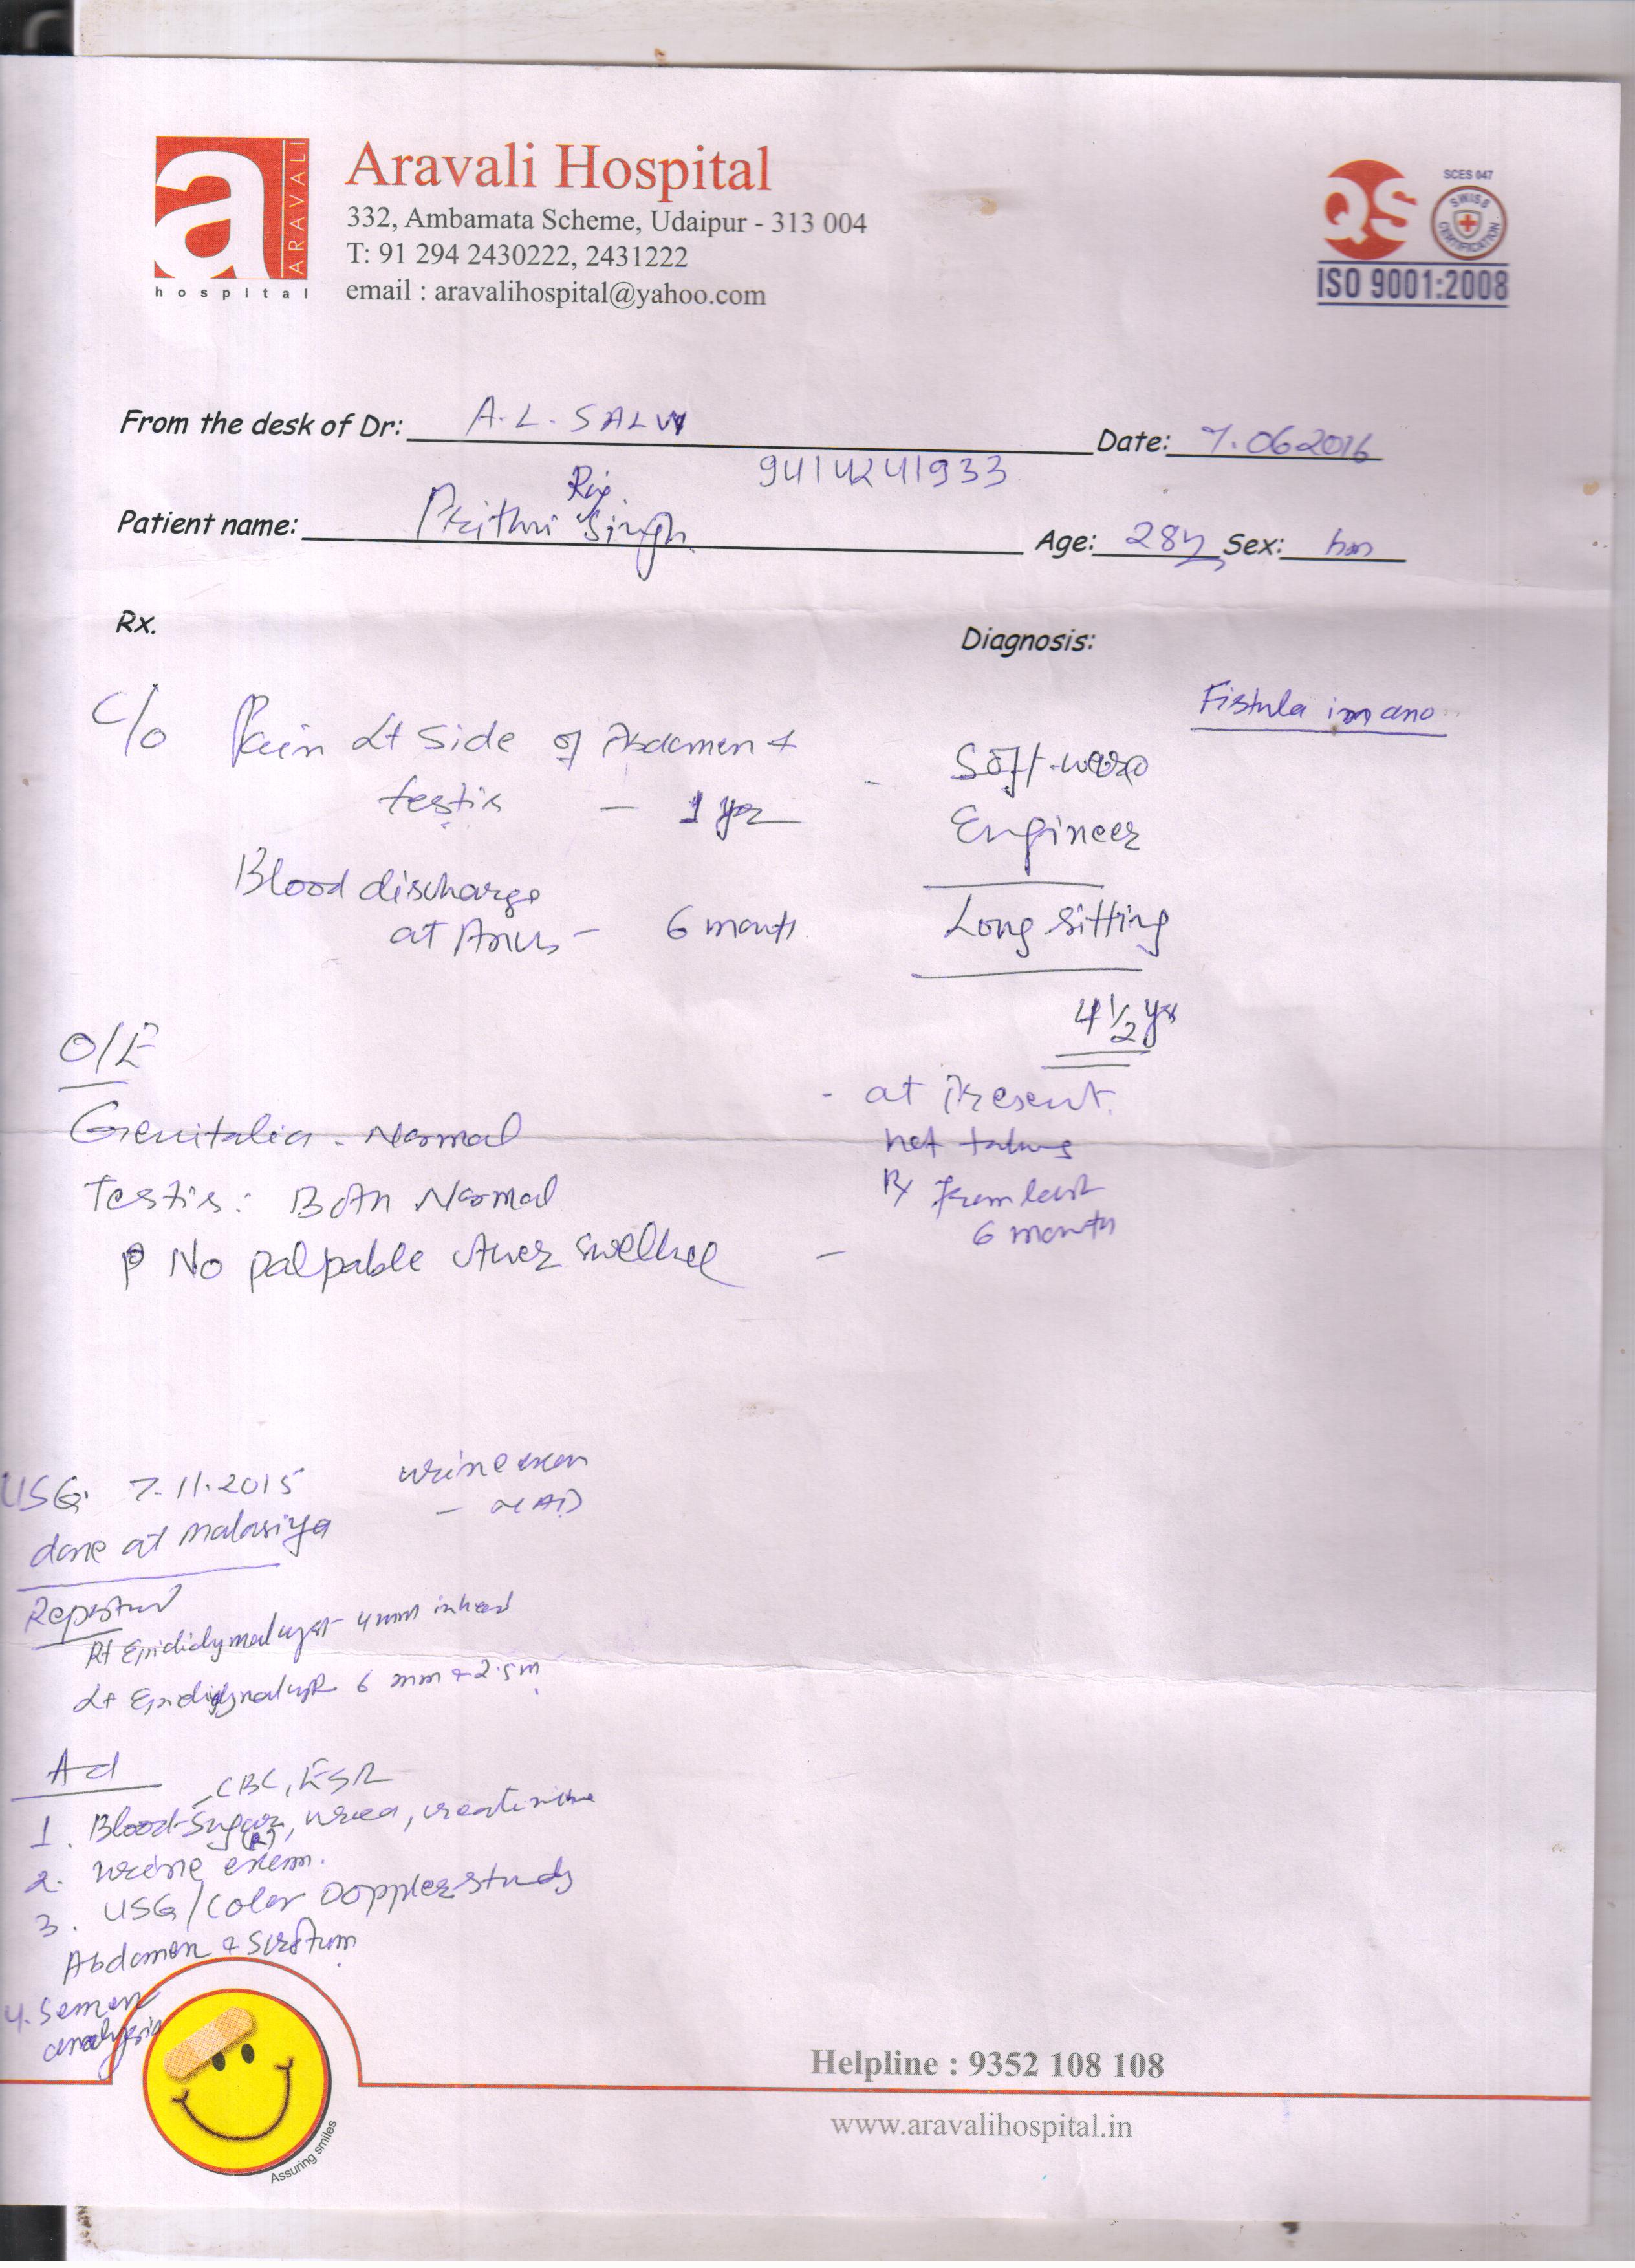 a
ARAVALI
hospital
Aravali Hospital
332, Ambamata Scheme, Udaipur - 313 004
T: 91 294 2430222, 2431222
email : aravalihospital@yahoo.com
QS
SCES 047
SWISS
CERTIFICATION
ISO 9001:2008
From the desk of Dr: A.L. SALVI
Date: 7.06.2016
9414241933
Raj
Patient name: Prithvi Singh
Age: 28y Sex:
Rx.
Diagnosis:
Fistula in ano
C/o Pain Lt Side of Abdomen &
testis - 1 yr
Blood discharge
at Anus - 6 month
- Soft-ware
Engineer
Long sitting
4 1/2 yrs
O/E
Genitalia - Normal
Testis: Both Normal
No palpable
- at Present
not taking
Rx from last
6 month
USG. 7.11.2015
done at Malasiya
urine exam
- NAD
Reported
Rt Epididymal cyst 4mm in head
Lt Epididymal cyst 6 mm & 2.5m
Ad
CBC, ESR
1. Blood-Sugar, urea, creatinine
(R)
2. urine exam.
3. USG/Color Doppler study
Abdomen & Scrotum
4. Semen
analysis
Assuring smiles
Helpline : 9352 108 108
www.aravalihospital.in